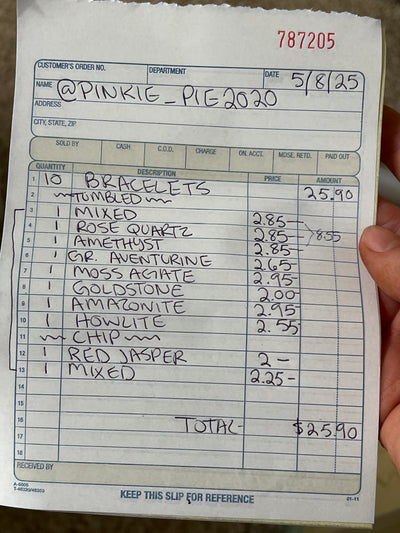 787205
CUSTOMER'S ORDER NO. DEPARTMENT DATE 5/8/25
NAME @PINKIE_PIE2020
ADDRESS
CITY, STATE, ZIP
SOLD BY CASH C.O.D. CHARGE ON. ACCT. MDSE. RETD. PAID OUT
QUANTITY DESCRIPTION PRICE AMOUNT
1 10 BRACELETS 25.90
2 ~TUMBLED~
3 1 MIXED 2.85-
4 1 ROSE QUARTZ 2.85- 8.55
5 1 AMETHYST 2.85-
6 1 GR. AVENTURINE 2.65-
7 1 MOSS AGATE 2.95-
8 1 GOLDSTONE 2.00-
9 1 AMAZONITE 2.95-
10 1 HOWLITE 2.55
11 ~CHIP~
12 1 RED JASPER 2-
13 1 MIXED 2.25-
14
15
16 TOTAL- $25.90
17
18
RECEIVED BY
A-5805
T-46320/46350
KEEP THIS SLIP FOR REFERENCE
01-11